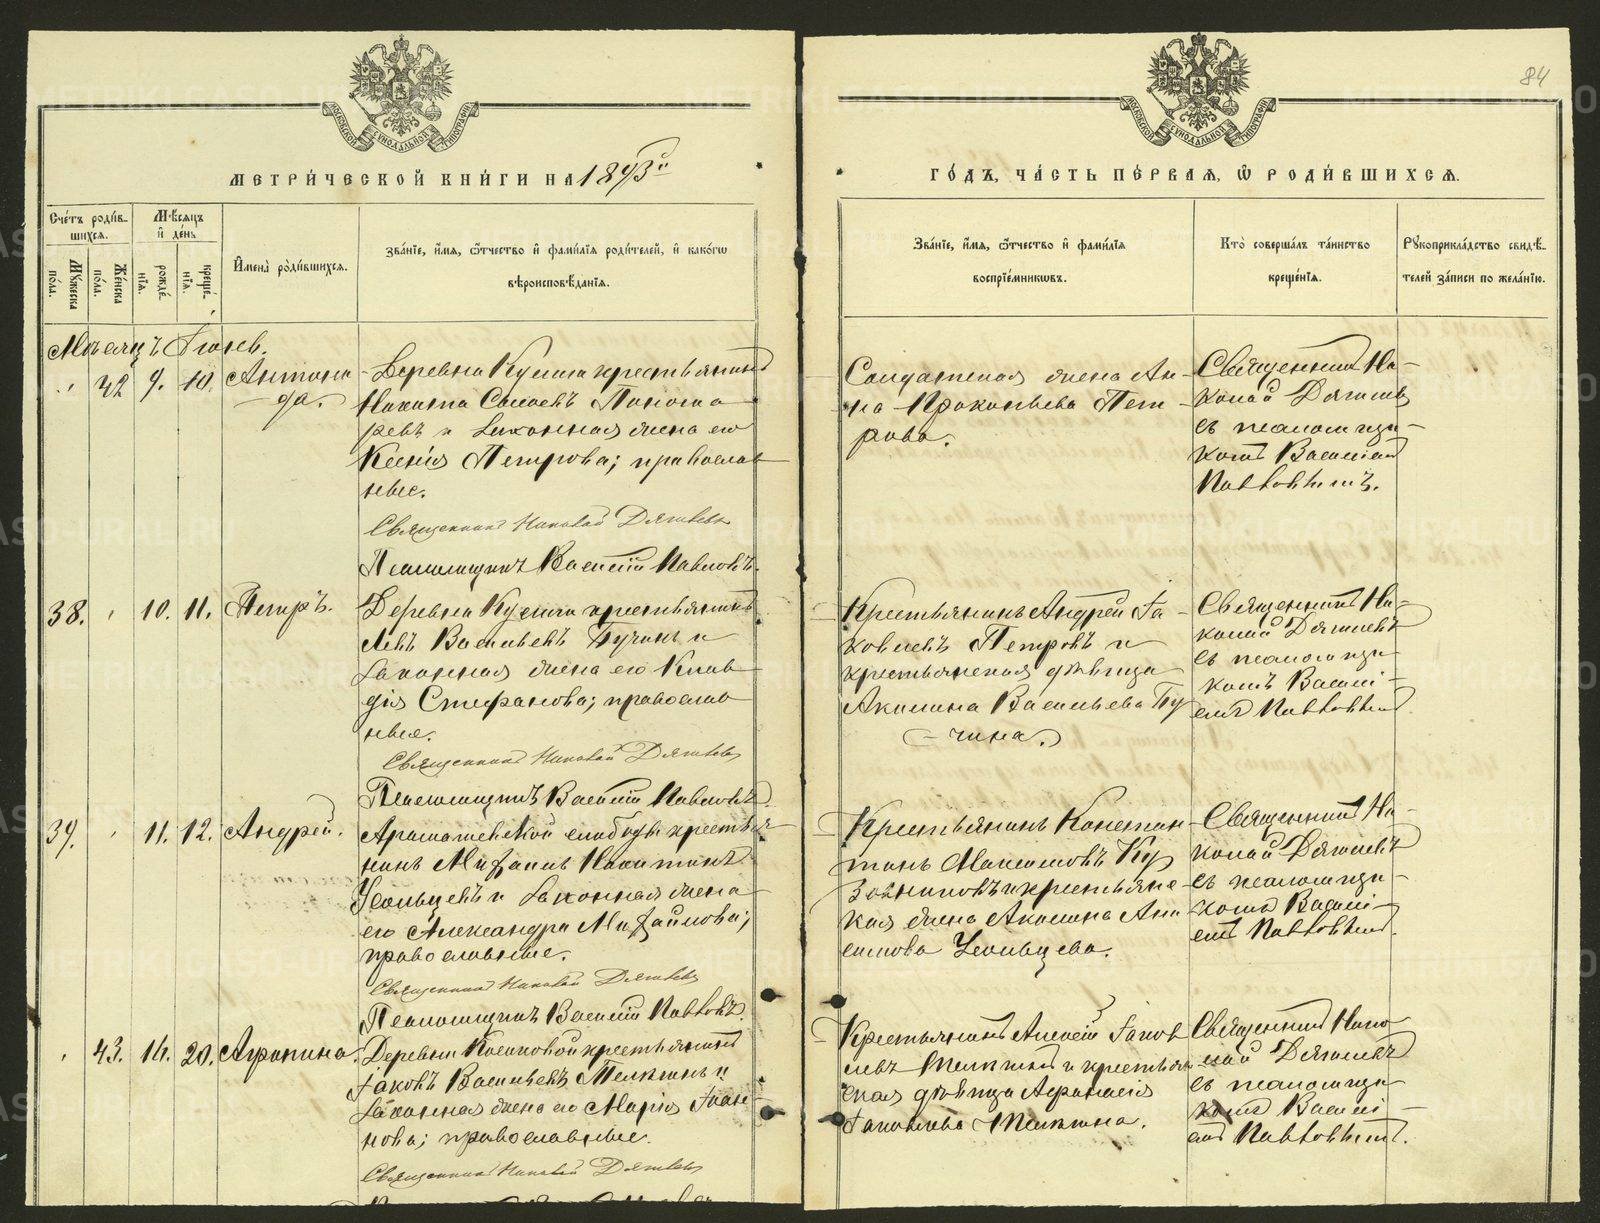 84
МОСКОВСКОЙ СѴНОДАЛЬНОЙ ТИПОГРАФІИ
МОСКОВСКОЙ СѴНОДАЛЬНОЙ ТИПОГРАФІИ
МЕТРИ́ЧЕСКОЙ КНИ́ГИ НА 1893й
ГО́ДЪ, ЧА́СТЬ ПЕ́РВАѦ, Ѿ РОДИ́ВШИХСѦ.
Сче́тъ роди́в-
шихсѧ.
Мꙋжеска
по́ла.
Же́нска
по́ла.
Мѣ́сѧцъ
и҆ де́нь
рожде́-
нїѧ.
креще́-
нїѧ.
И҆мена̀ роди́вшихсѧ.
Зва́нїе, и҆́мѧ, ѻ҆́тчество и҆ фами́лїѧ роди́телей, и҆ како́гѡ
вѣроисповѣ́данїѧ.
Зва́нїе, и҆́мѧ, ѻ҆́тчество и҆ фами́лїѧ
воспрїе́мникѡвъ.
Кто̀ соверша́лъ та́инство
креще́нїѧ.
Рꙋкоприкла́дство свидѣ́-
телей за́писи по жела́нїю.
Мѣсяцъ Іюнь.
42 9. 10. Антони-
да.
Деревни Кулиги крестьянинъ
Никита Савовъ Понома-
ревъ и законная жена его
Ксенія Петрова; православ-
ные.
Священникъ Николай Дягилевъ
Псаломщикъ Василій Павловъ.
Солдатская жена Ан-
на Прокопьева Пет-
рова.
Священникъ Ни-
колай Дягилевъ
съ псаломщи-
комъ Василіемъ
Павловымъ.
38. 10. 11. Петръ.
Деревни Кулиги крестьянинъ
Левъ Васильевъ Бучинъ и
законная жена его Клав-
дія Стефанова; православ-
ные.
Священникъ Николай Дягилевъ
Псаломщикъ Василій Павловъ.
Крестьянинъ Андрей Іа-
ковлевъ Петровъ и
крестьянская дѣвица
Акилина Васильева Бу-
чина.
Священникъ Ни-
колай Дягилевъ
съ псаломщи-
комъ Василі-
емъ Павловымъ.
39. 11. 12. Андрей.
Арамашевской слободы крестья-
нинъ Михаилъ Никитинъ
Усольцевъ и законная жена
его Александра Михайлова;
православные.
Священникъ Николай Дягилевъ
Псаломщикъ Василій Павловъ.
Крестьянинъ Констан-
тинъ Максимовъ Ку-
зовниковъ и крестьянс-
кая жена Акилина Ани-
симова Усольцева.
Священникъ Ни-
колай Дягилевъ
съ псаломщи-
комъ Василі-
емъ Павловымъ.
43. 14. 20. Агрипина.
Деревни Косиковой крестьянинъ
Іаковъ Васильевъ Телкинъ и
законная жена его Марія Іоан-
нова; православные.
Священникъ Николай Дягилевъ
Крестьянинъ Алексій Іаков-
левъ Телкинъ и крестьян-
ская дѣвица Афанасія
Іаковлева Телкина.
Священникъ Нико-
лай Дягилевъ
съ псаломщи-
комъ Василі-
емъ Павловымъ.